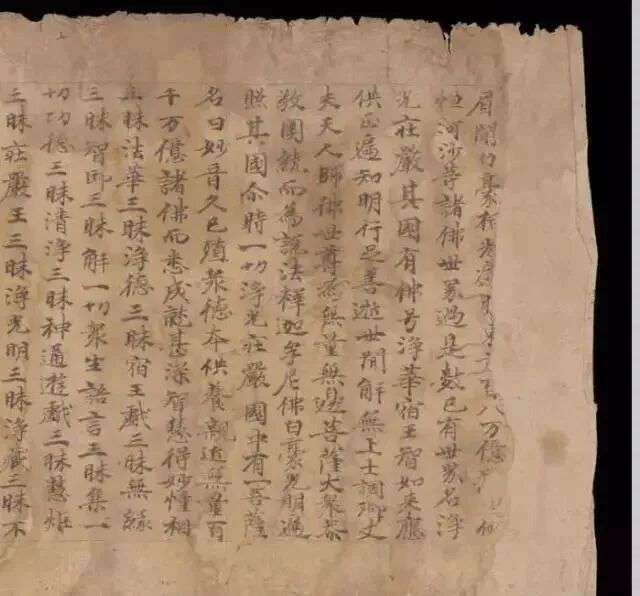 眉間白毫相光 八万億
恒河沙等諸佛世界過是數已有世界名淨
光莊嚴其國有佛号淨華宿王智如來應
供正遍知明行足善逝世間解無上士調御丈
夫天人師佛世尊為無量無邊菩薩大衆恭
敬圍繞而為說法釋迦牟尼佛白毫光明遍
照其國尒時一切淨光莊嚴國中有一菩薩
名曰妙音久已殖衆德本供養親近無量百
千万億諸佛而悉成就甚深智慧得妙幢相
三昧法華三昧淨德三昧宿王戲三昧無緣
三昧智印三昧解一切衆生語言三昧集一
切功德三昧清淨三昧神通遊戲三昧慧炬
三昧莊嚴王三昧淨光明三昧淨藏三昧不